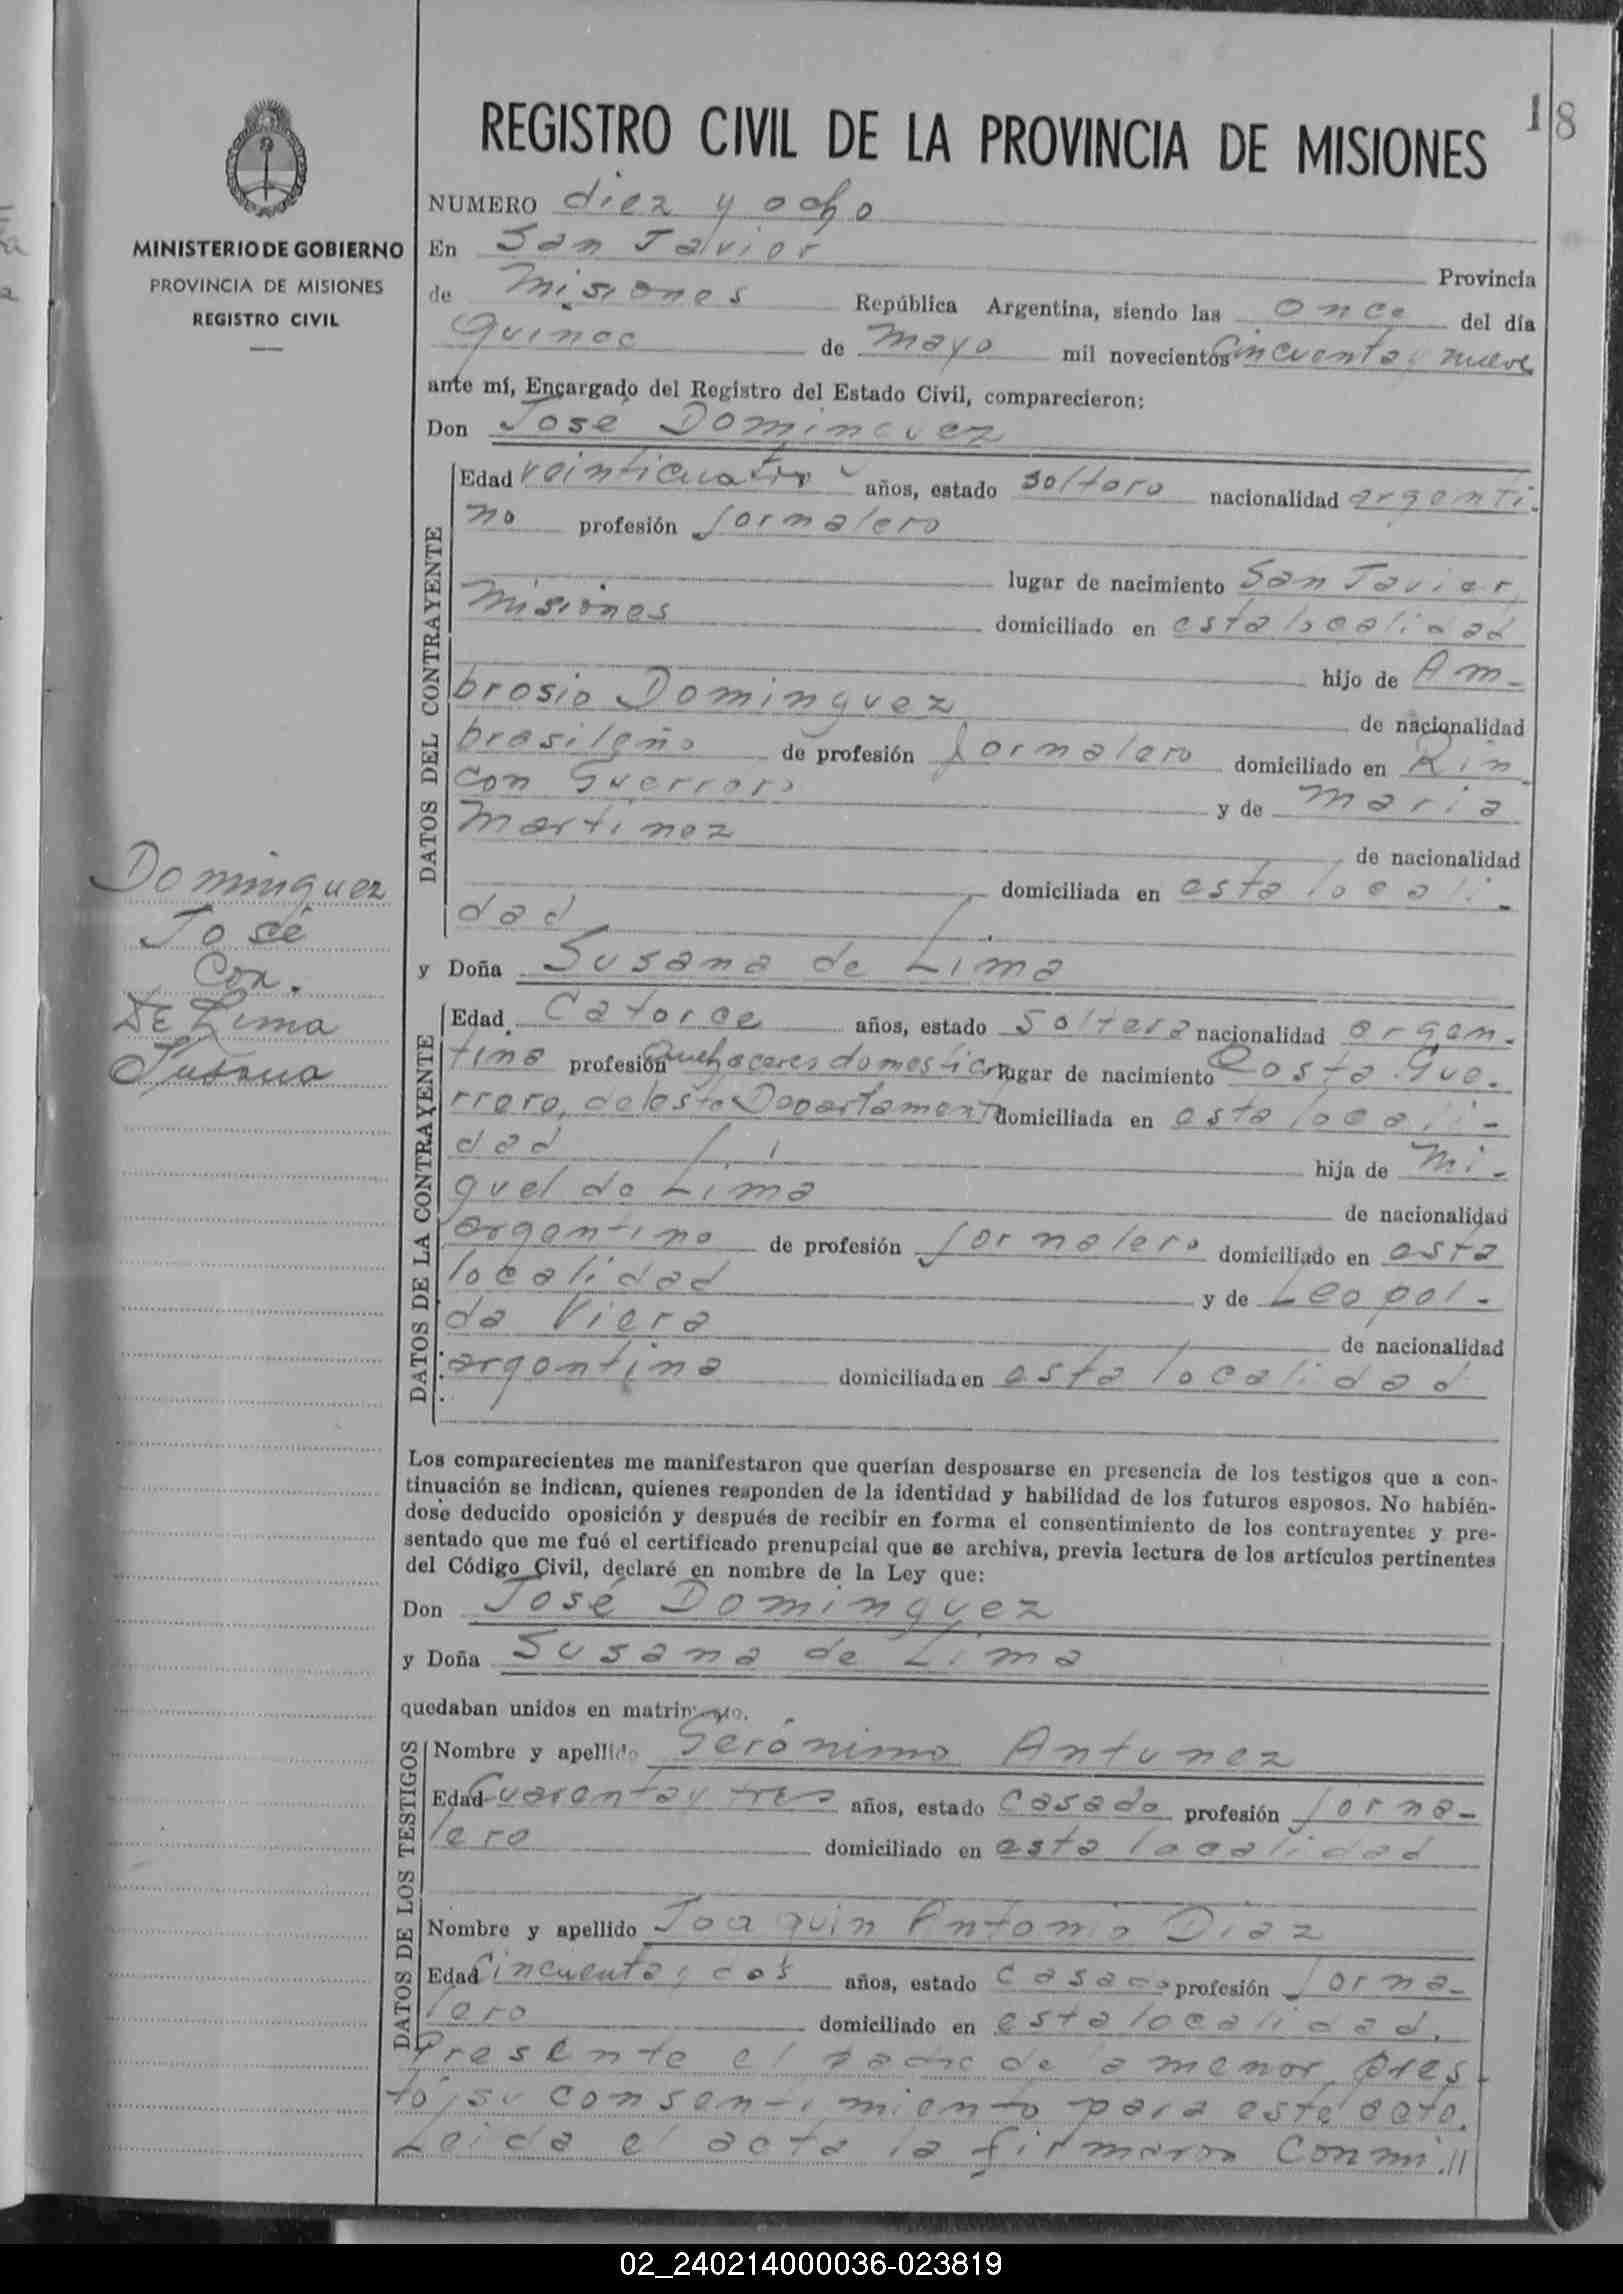 18
REGISTRO CIVIL DE LA PROVINCIA DE MISIONES
MINISTERIO DE GOBIERNO
PROVINCIA DE MISIONES
REGISTRO CIVIL
NUMERO diez y ocho
En San Javier Provincia
de Misiones República Argentina, siendo las once del día
quince de mayo mil novecientos cincuenta y nueve
ante mí, Encargado del Registro del Estado Civil, comparecieron:
Don José Dominguez
DATOS DEL CONTRAYENTE
Edad veinticuatro años, estado soltero nacionalidad argenti-
no profesión Jornalero
lugar de nacimiento San Javier,
Misiones domiciliado en esta localidad
hijo de Am-
brosio Dominguez de nacionalidad
brasileño de profesión Jornalero domiciliado en Rin-
con Guerrero y de Maria
Martinez de nacionalidad
domiciliada en esta locali-
dad
y Doña Susana de Lima
DATOS DE LA CONTRAYENTE
Edad Catorce años, estado soltera nacionalidad argen-
tina profesión Quehaceres domesticos lugar de nacimiento Costa Gue-
rrero, de este Departamento domiciliada en esta locali-
dad hija de Mi-
guel de Lima de nacionalidad
argentino de profesión Jornalero domiciliado en esta
localidad y de Leopol-
da Viera de nacionalidad
argentina domiciliada en esta localidad
Dominguez
José
Con.
De Lima
Susana
Los comparecientes me manifestaron que querían desposarse en presencia de los testigos que a con-
tinuación se indican, quienes responden de la identidad y habilidad de los futuros esposos. No habién-
dose deducido oposición y después de recibir en forma el consentimiento de los contrayentes y pre-
sentado que me fué el certificado prenupcial que se archiva, previa lectura de los artículos pertinentes
del Código Civil, declaré en nombre de la Ley que:
Don José Dominguez
y Doña Susana de Lima
quedaban unidos en matrimonio.
DATOS DE LOS TESTIGOS
Nombre y apellido Gerónimo Antunez
Edad Cuarenta y tres años, estado casado profesión Jorna-
lero domiciliado en esta localidad
Nombre y apellido Joaquin Antonio Diaz
Edad Cincuenta y dos años, estado casado profesión Jorna-
lero domiciliado en esta localidad.
Presente el padre de la menor, pres-
tó su consentimiento para este acto.
Leida el acta la firmaron conmi.//
02_240214000036-023819